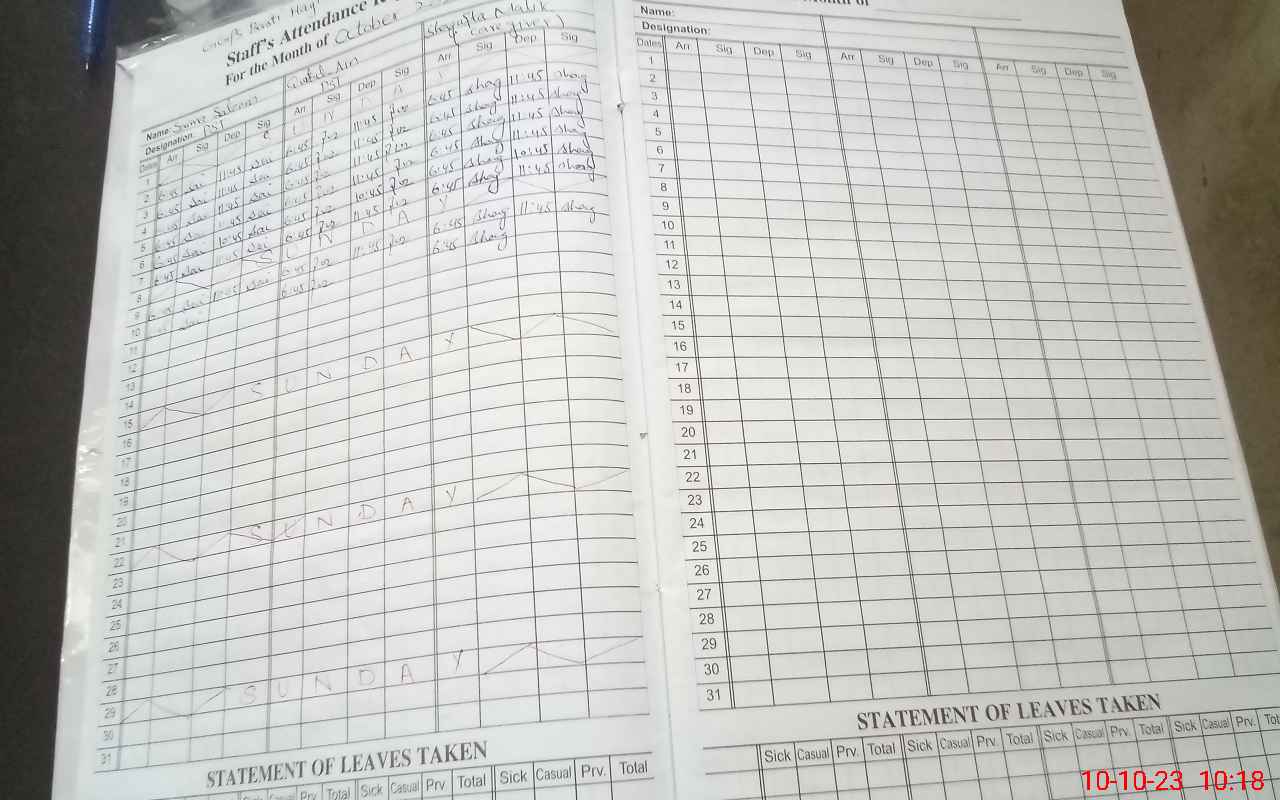 Staff's Attendance
For the Month of October
Shagufta Malik
(care giver)
Name:
Designation: PST
PST
Dates Arr Sig Dep Sig Arr Sig Dep Sig Arr Sig Dep Sig
1 S U N D A Y
2 6:45 Sai 11:45 Sai 6:45 11:45 6:45 Shag 11:45 Shag
3 6:45 Sai 11:45 Sai 6:45 11:45 6:45 Shag 11:45 Shag
4 6:45 Sai 11:45 Sai 6:45 11:45 6:45 Shag 11:45 Shag
5 6:45 Sai 11:45 Sai 6:45 11:45 6:45 Shag 11:45 Shag
6 6:45 Sai 10:45 Sai 6:45 10:45 6:45 Shag 10:45 Shag
7 6:45 Sai 11:45 Sai 6:45 11:45 6:45 Shag 11:45 Shag
8 S U N D A Y
9 6:45 Sai 11:45 Sai 6:45 11:45 6:45 Shag 11:45 Shag
10 Sai 6:45 6:45 Shag
11
12
13
14
15 S U N D A Y
16
17
18
19
20
21
22 S U N D A Y
23
24
25
26
27
28
29 S U N D A Y
30
31
STATEMENT OF LEAVES TAKEN
Sick Casual Prv Total Sick Casual Prv Total Sick Casual Prv. Total
Name:
Designation:
Dates Arr Sig Dep Sig Arr Sig Dep Sig Arr Sig Dep Sig
1
2
3
4
5
6
7
8
9
10
11
12
13
14
15
16
17
18
19
20
21
22
23
24
25
26
27
28
29
30
31
STATEMENT OF LEAVES TAKEN
Sick Casual Prv. Total Sick Casual Prv. Total Sick Casual Prv. Total Sick Casual Prv. Tot
10-10-23 10:18